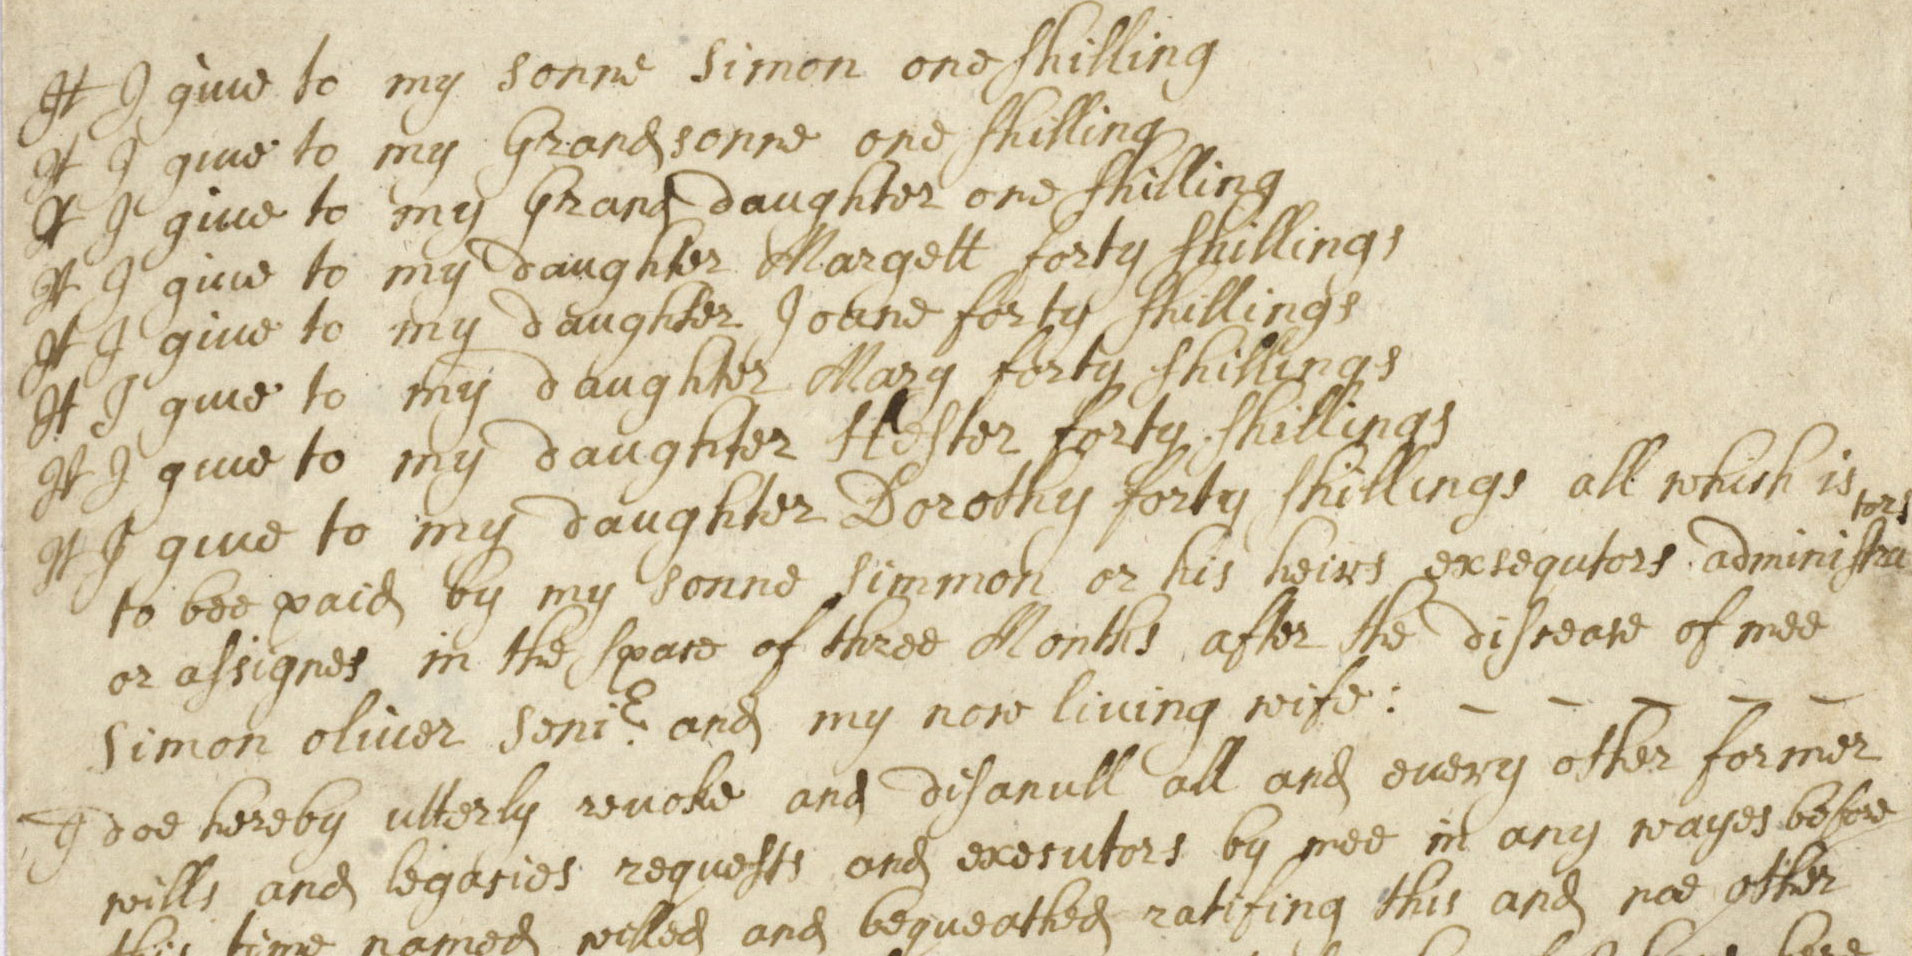 It I giue to my sonne Simon one shilling
It I giue to my Grandsonne one shilling
It I giue to my Grand daughter one shilling
It I giue to my daughter Margett forty shillings
It I giue to my daughter Joane forty shillings
It I giue to my daughter Mary forty shillings
It I giue to my daughter Hester forty shillings
It I giue to my daughter Dorothy forty shillings all which is
to bee paid by my sonne Simmon or his heirs exsequtors administrators
or assignes in the space of three Months after the discease of mee
Simon oliuer Senir. and my now liuing wife: – – – – –
I doe hereby utterly reuoke and disanull all and euery other former
wills and legacies requests and executors by mee in any wayes before
this time named willed and bequeathed ratifing this and noe other